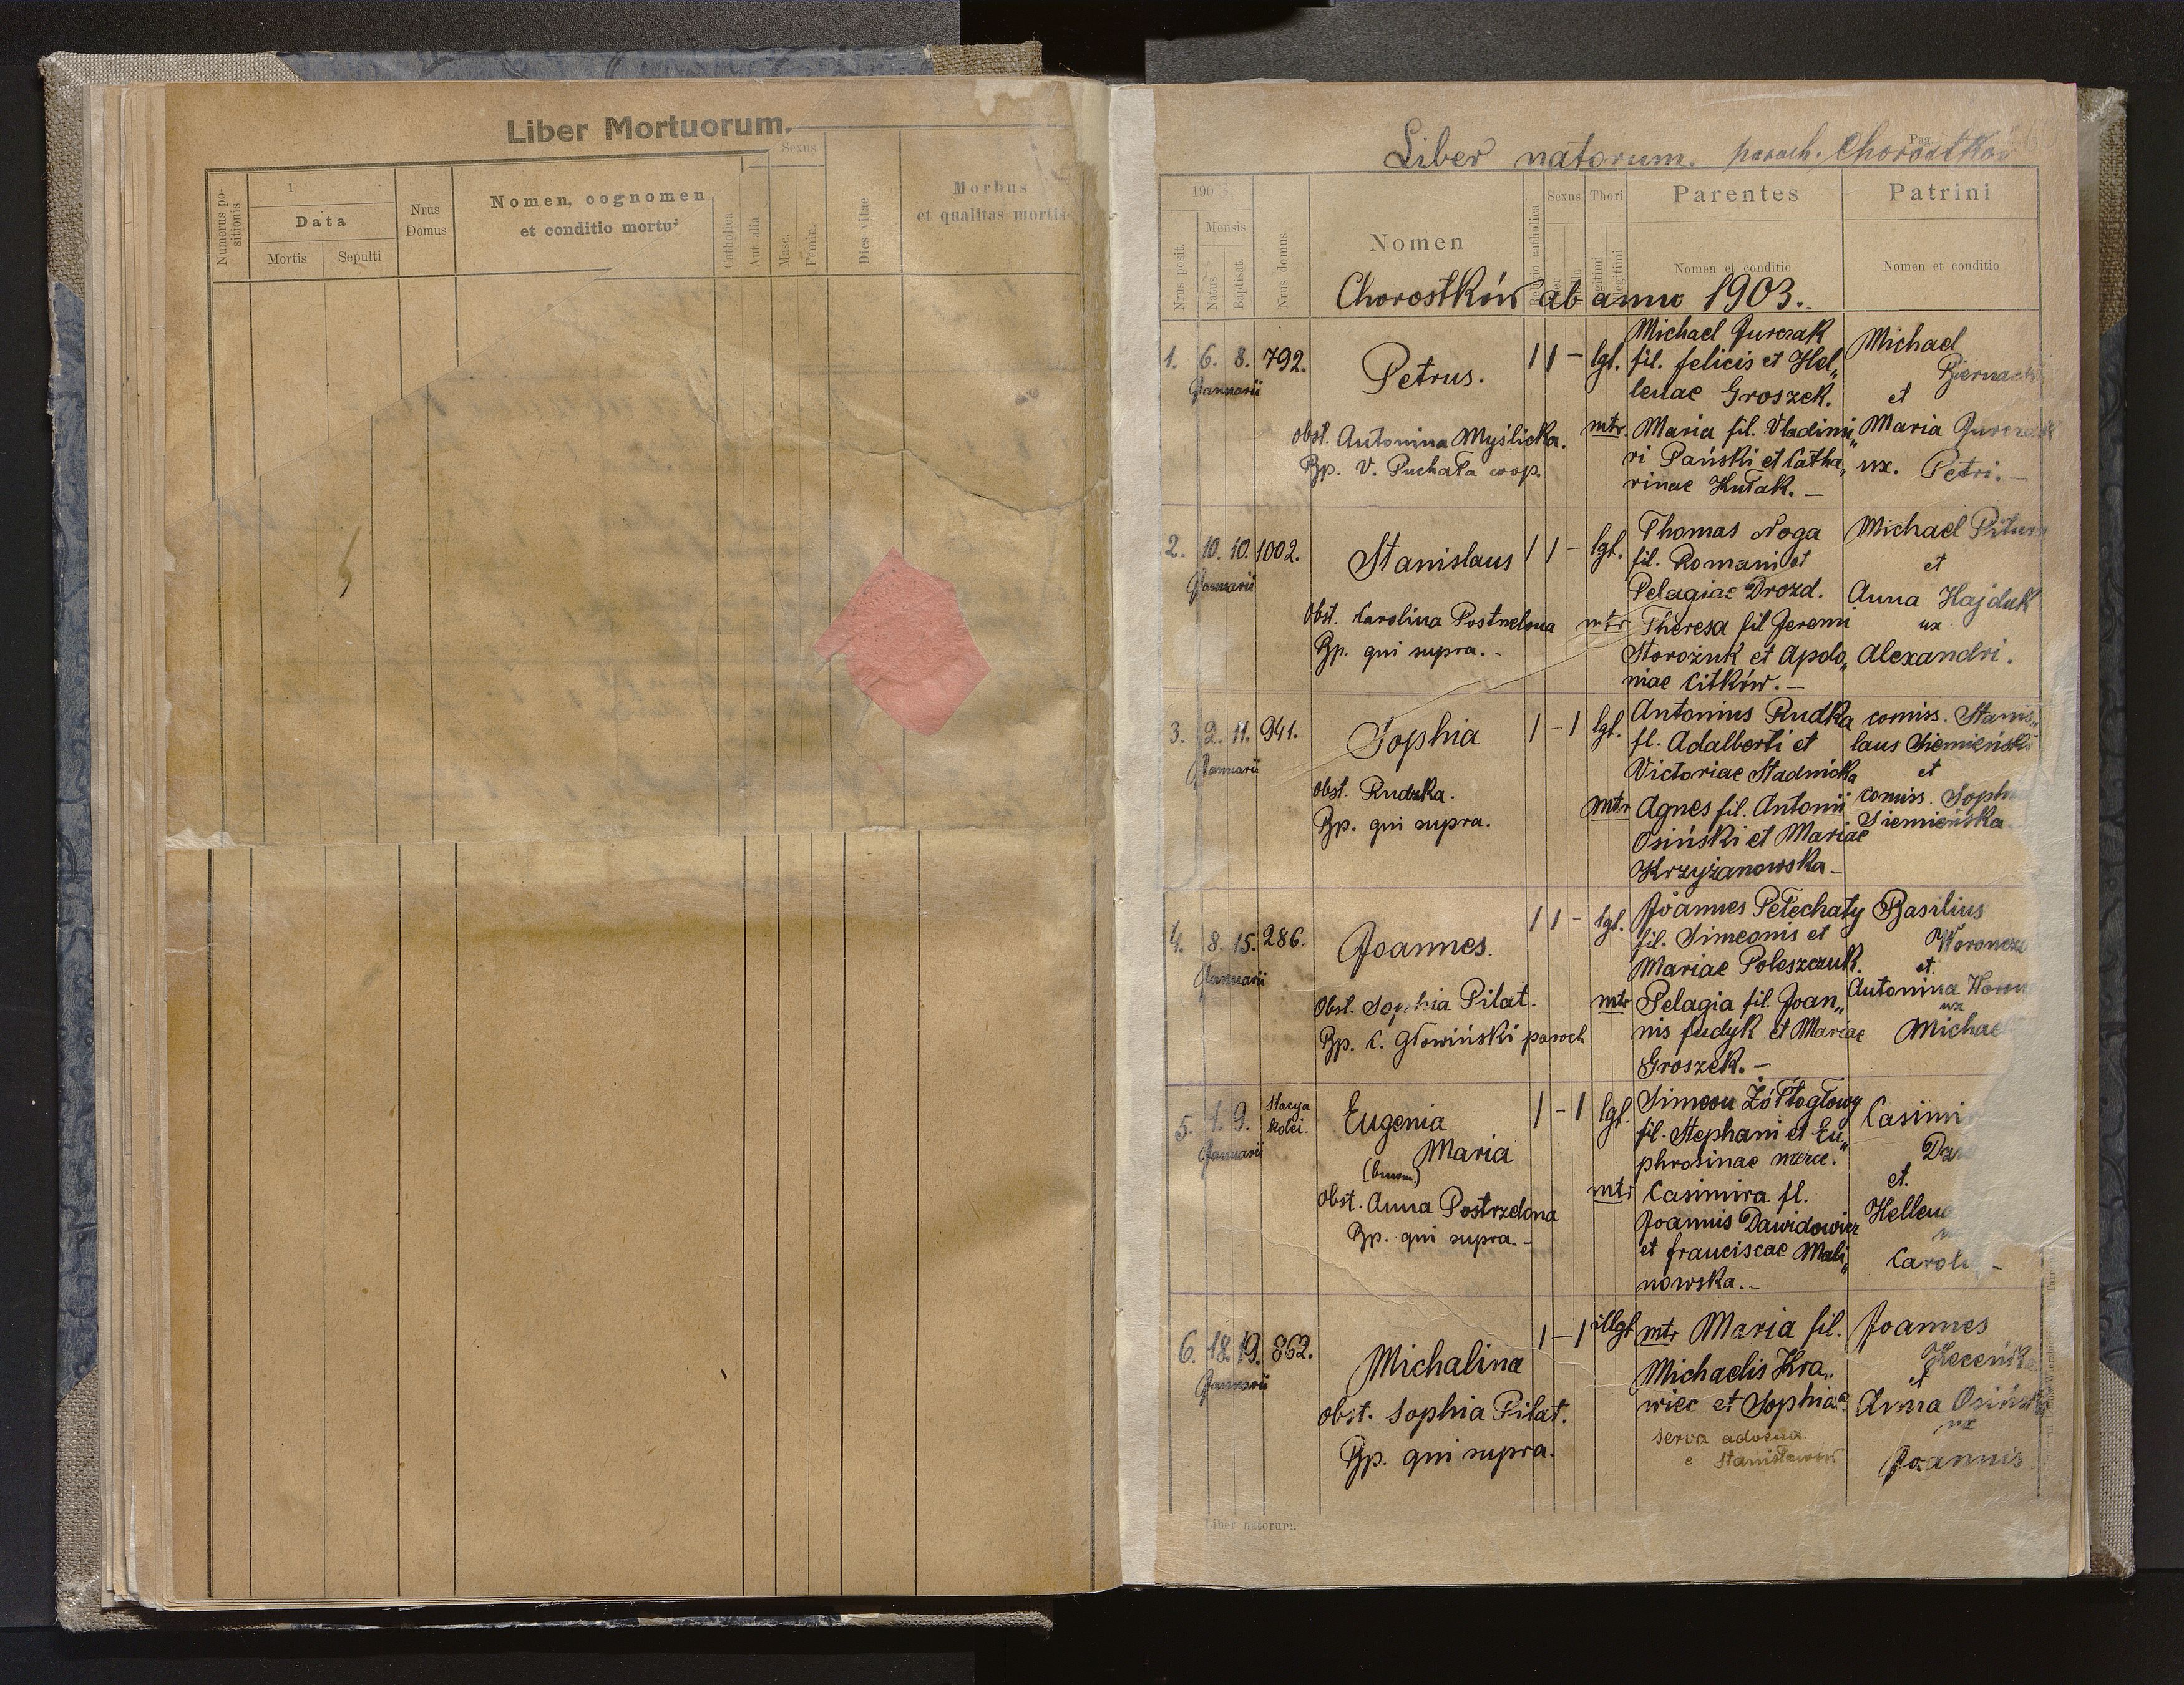 Liber Mortuorum.
Numerus positionis
1
Data
Mortis
Sepulti
Nrus Domus
Nomen, cognomen
et conditio mortu
Catholica
Aut alia
Sexus
Masc.
Femin.
Dies vitae
Morbus
et qualitas mortis
Liber natorum. paroch. Chorostków
Pag.
190
Nrus posit.
Mensis
Natus
Baptisat.
Nrus domus
Nomen
Religio catholica
Sexus
Thori
Parentes
Nomen et conditio
Patrini
Nomen et conditio
Chorostków ab anno 1903.
1. 6. 8. 792.
Januarii
Petrus.
1 1 - lgt.
obst. Antonina Myślicka.
Bp. V. Puchała coop.
Michael Jurczak
fil. felicis et Hel„
lenae Groszek.
mtr. Maria fil. Vladimi„
ri Pański et Catha„
rinae Kułak. -
Michael
et
Maria
ux. Petri. -
2. 10. 10. 1002.
Januarii
Stanislaus
1 1 - lgt.
Obst. Carolina
Bp. qui supra. -
Thomas Noga
fil. Romani et
Pelagiae Drozd.
mtr Theresa fil Jeremi
Storożuk et Apolo„
niae Citków. -
Michael
et
Anna Hajduk
ux
Alexandri.
3. 2. 11. 941.
Januarii
Sophia
1 - 1 lgt.
Obst. Rudzka.
Bp. qui supra.
Antonius Rudka
fl. Adalberti et
Victoriae Stadnicka
mtr Agnes fil. Antonii
Osiński et Mariae
Krzyżanowska -
comiss. Stanis„
laus Siemieński
et
comiss.
Siemieńska
4. 8. 15. 286.
Januarii
Joannes.
1 1 - lgt.
Obst. Sophia Pilat.
Bp. C. Głowiński paroch
Joannes Pełechaty
fil. Simeonis et
Mariae Poleszczuk.
mtr Pelagia fil. Joan„
nis fudyk et Mariae
Groszek. -
Basilius
et.
Antonina
ux
5. 1. 9. Stacya
kolei.
Januarii
Eugenia
Maria
(binom.)
1 - 1 lgt.
Obst. Anna Postrzelona
Bp. qui supra. -
Simeon Żółtogłowy
fil. Stephani et Eu„
phrosinae merce.
mtr Casimira fl.
Joannis Dawidowicz
et franciscae Mali„
nowska. -
et.
6. 18. 19. 862.
Januarii
Michalina
1 - 1 illgt
obst. Sophia Pilat.
Bp. qui supra.
mtr Maria fil.
Michaelis Kra„
wiec et Sophiae
serva advena
e Stanisławów
Joannes
et
Anna
ux
Joannis
Liber natorum.